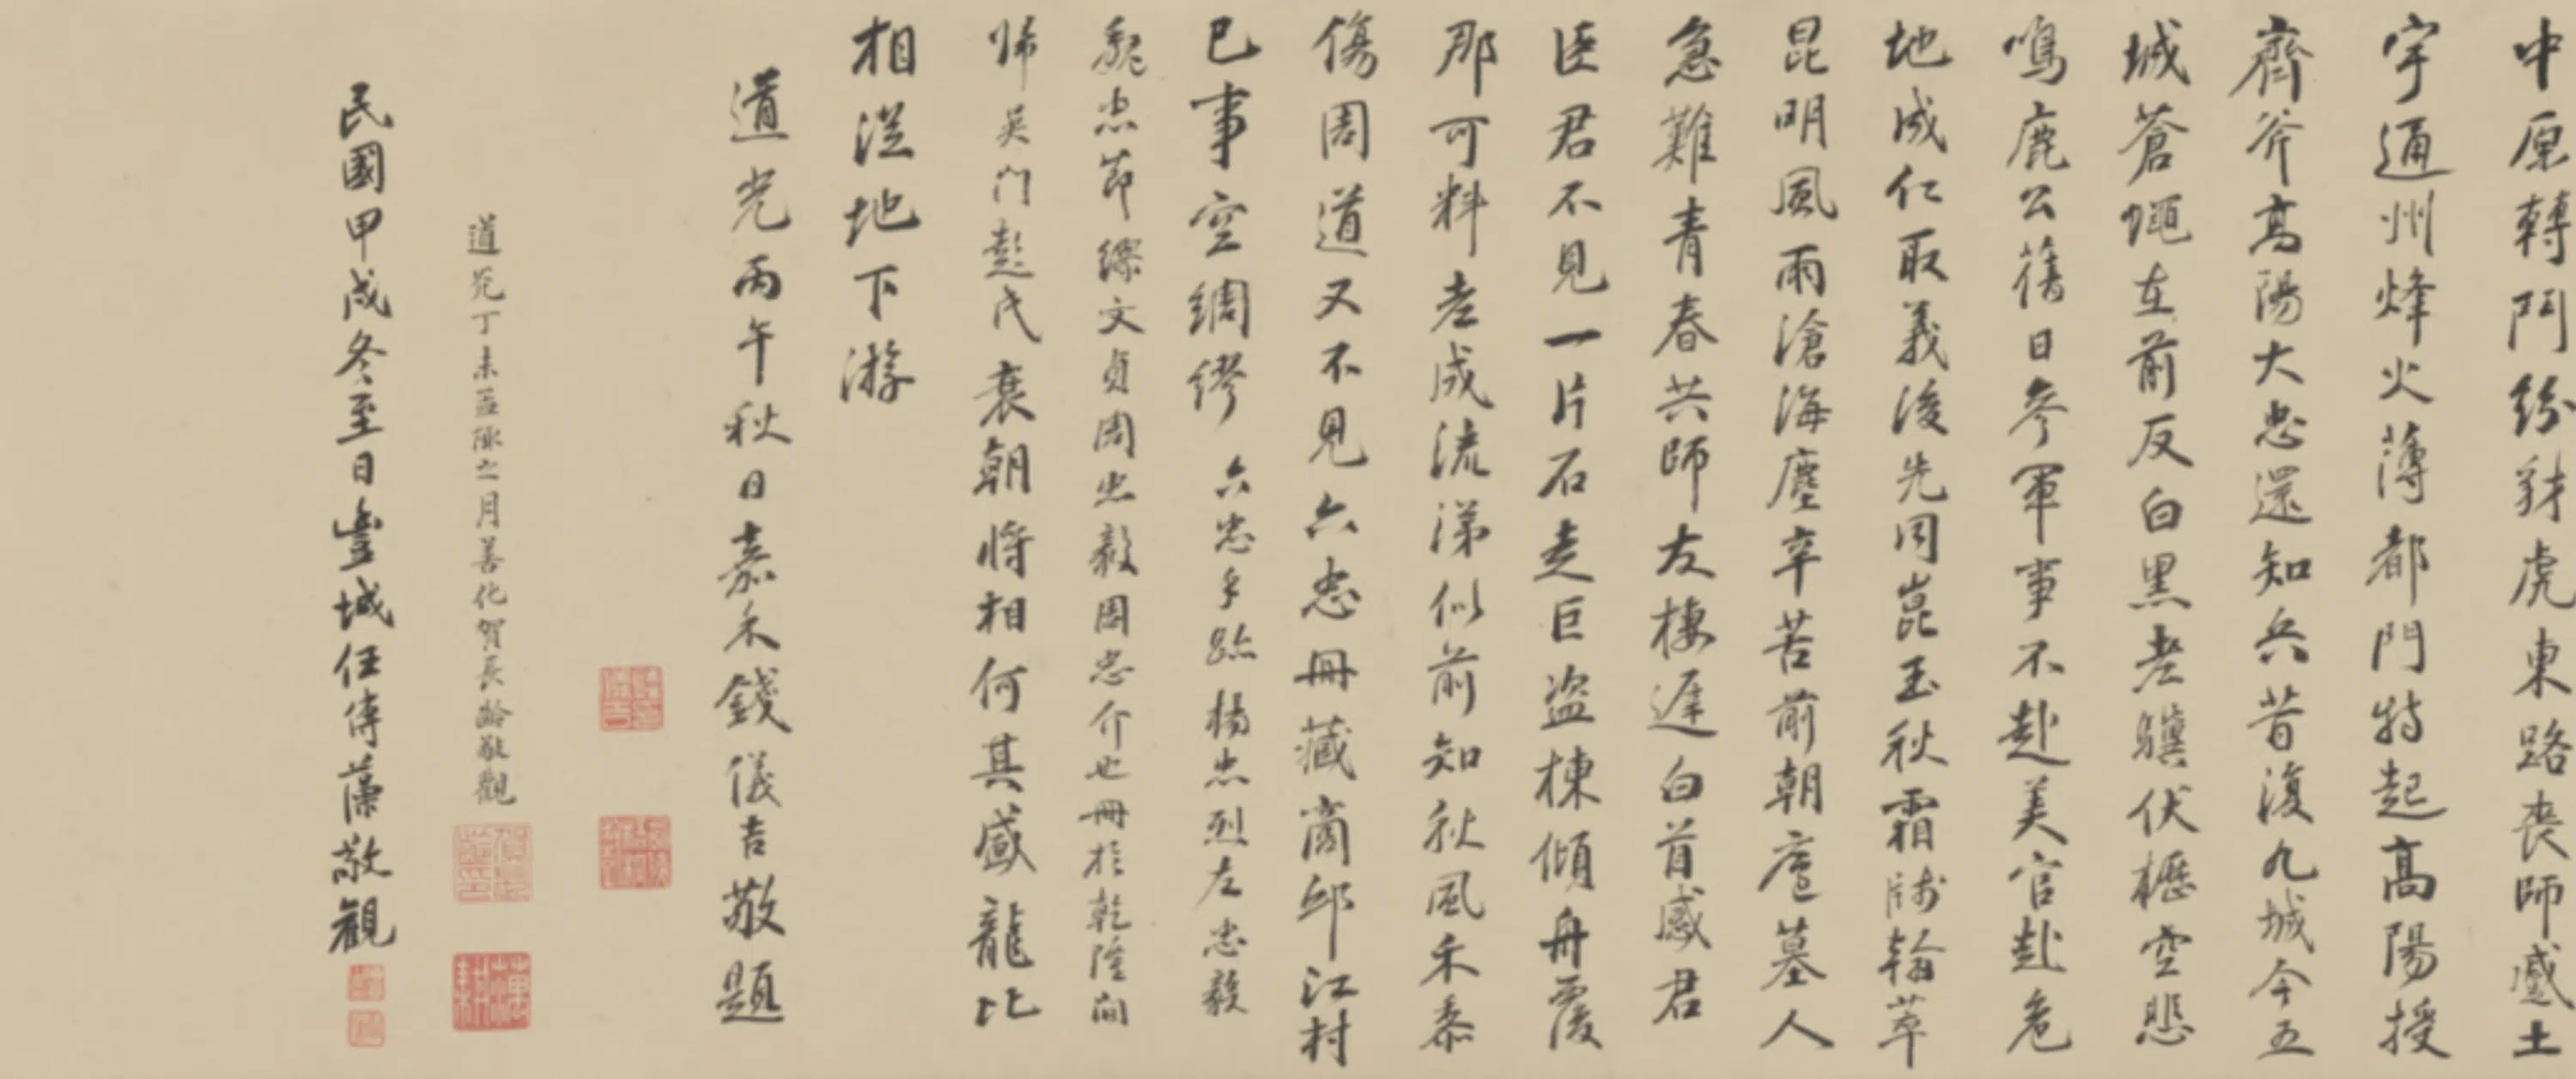 中原轉鬥紛豺虎東路喪師蹙土
宇通州烽火薄都門特起高陽授
齊斧高陽大忠還知兵昔復九城今五
城蒼蠅在前反白黑老驥伏櫪空悲
鳴鹿公舊日參軍事不赴美官赴危
地成仁取義後先同崑玉秋霜蕭艾
昆明風雨滄海塵辛苦前朝廬墓人
急難青春共師友棲遲白首感君
臣君不見一片石走巨盜棟傾舟覆
那可料老成流涕似前知秋風禾黍
傷周道又不見六忠冊藏商邱江村
已事空綢繆 六忠手跡楊忠烈左忠毅
魏忠節繆文貞周忠毅周忠介也冊於乾隆間
歸吳門彭氏 衰朝將相何其盛龍比
相從地下游
道光丙午秋日嘉禾錢儀吉敬題
道光丁未孟陬之月善化賀長齡敬觀
民國甲戌冬至日豐城任傳藻敬觀